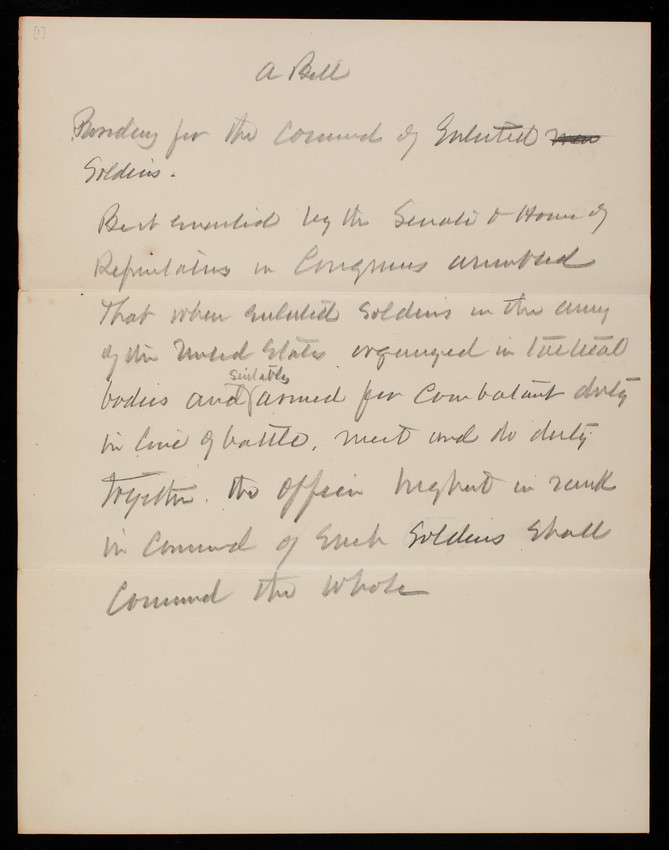 [1]
A Bill
Providing for the Command of Enlisted men
Soldiers.
Be it enacted by the Senate & House of
Representatives in Congress assembled
That when enlisted Soldiers in the army
of the United States organized in tactical
suitably
bodies and armed for combatant duty
in line of battle, meet and do duty
together. the officer highest in rank
in command of such Soldiers shall
command the whole